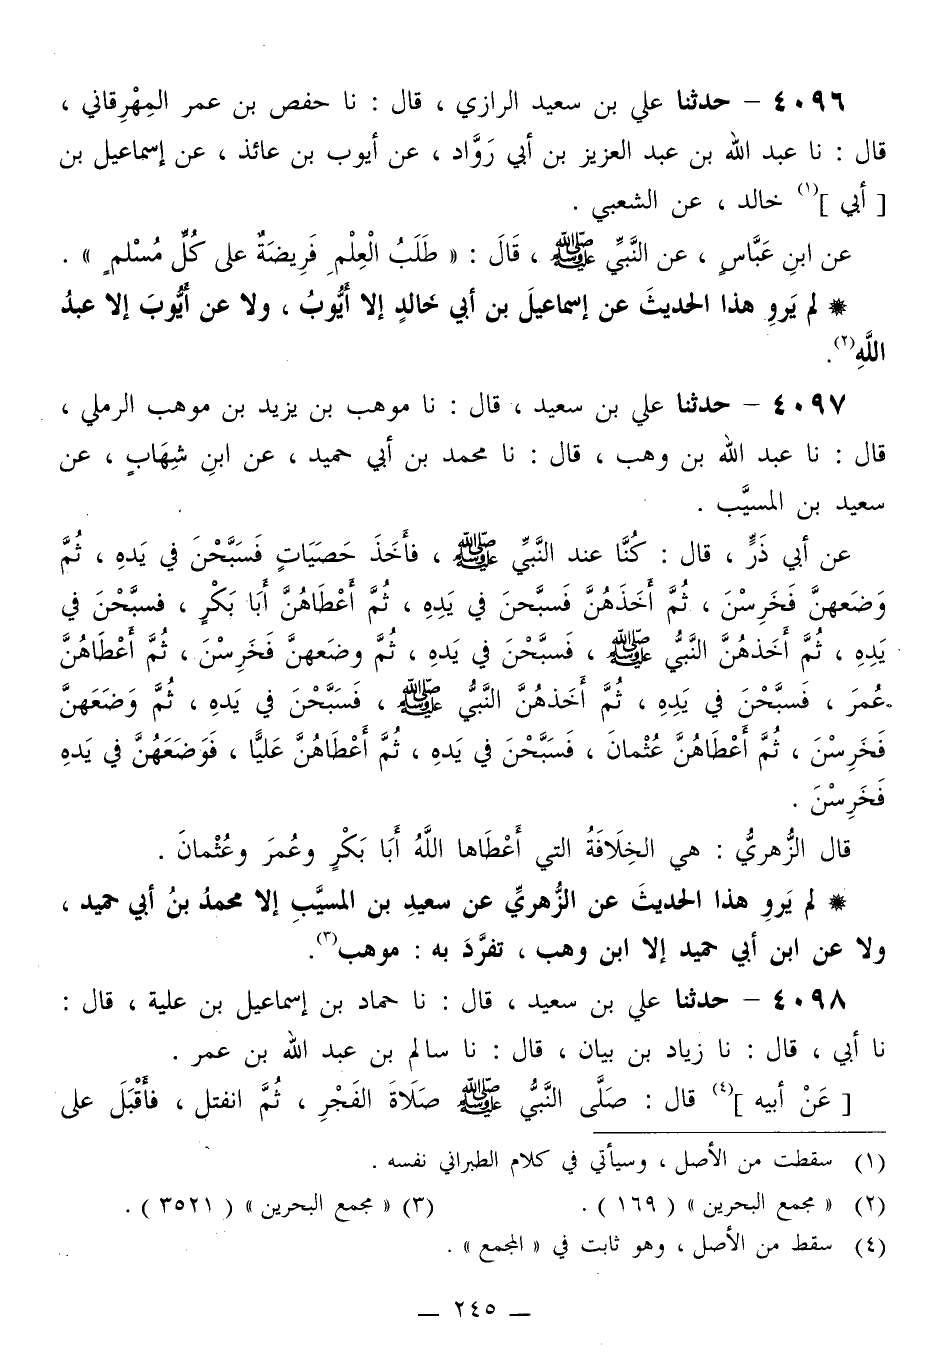 ٤٠٩٦ – حدثنا علي بن سعيد الرازي ، قال : نا حفص بن عمر المِهْرِقاني ،
قال : نا عبد الله بن عبد العزيز بن أبي رَوَّاد ، عن أيوب بن عائذ ، عن إسماعيل بن
[ أبي ](١) خالد ، عن الشعبي .
عن ابنِ عَبَّاسٍ ، عن النَّبيِّ ﷺ ، قَالَ : « طَلَبُ الْعِلْمِ فَرِيضَةٌ على كُلِّ مُسْلمٍ » .
* لم يَروِ هذا الحديثَ عن إسماعيلَ بن أبي خالدٍ إلا أيُّوبُ ، ولا عن أيُّوبَ إلا عبدُ
اللَّهِ(٢).
٤٠٩٧ – حدثنا علي بن سعيد ، قال : نا موهب بن يزيد بن موهب الرملي ،
قال : نا عبد الله بن وهب ، قال : نا محمد بن أبي حميد ، عن ابنِ شِهَابٍ ، عن
سعيد بن المسيَّب .
عن أبي ذَرٍّ ، قال : كُنَّا عند النَّبيِّ ﷺ ، فأَخَذَ حَصَيَاتٍ فَسَبَّحْنَ في يَدهِ ، ثُمَّ
وَضَعهنَّ فَخَرِسْنَ ، ثُمَّ أخَذَهُنَّ فَسبَّحنَ في يَدِهِ ، ثُمَّ أعْطَاهُنَّ أبَا بَكْرٍ ، فسبَّحْنَ في
يَدِهِ ، ثُمَّ أخَذهُنَّ النَّبيُّ ﷺ ، فَسبَّحْنَ في يَدهِ ، ثُمَّ وضَعهنَّ فَخَرِسْنَ ، ثُمَّ أعْطَاهُنَّ
عُمَرَ ، فَسبَّحْنَ في يَدِهِ ، ثُمَّ أخَذهُنَّ النَّبيُّ ﷺ ، فَسَبَّحْنَ في يَدهِ ، ثُمَّ وَضَعَهنَّ
فَخَرِسْنَ ، ثُمَّ أعْطَاهُنَّ عُثْمانَ ، فَسَبَّحْنَ في يَدهِ ، ثُمَّ أعْطَاهُنَّ عَليًّا ، فَوَضَعَهُنَّ في يَدهِ
فَخَرِسْنَ .
قال الزُّهريُّ : هي الخِلَافَةُ التي أعْطَاها اللَّهُ أبَا بَكْرٍ وعُمرَ وعُثْمانَ .
* لم يَروِ هذا الحديثَ عن الزُّهريِّ عن سعيدِ بن المسيَّبِ إلا محمدُ بنُ أبي حميد ،
ولا عن ابن أبي حميد إلا ابن وهب ، تفرَّدَ به : موهب(٣).
٤٠٩٨ – حدثنا علي بن سعيد ، قال : نا حماد بن إسماعيل بن علية ، قال :
نا أبي ، قال : نا زياد بن بيان ، قال : نا سالم بن عبد الله بن عمر .
[ عَنْ أبيه ](٤) قال : صَلَّى النَّبيُّ ﷺ صَلَاةَ الفَجْرِ ، ثُمَّ انفتل ، فأقْبَلَ على
(١) سقطت من الأصل ، وسيأتي في كلام الطبراني نفسه .
(٢) « مجمع البحرين » ( ١٦٩ ) . (٣) « مجمع البحرين » ( ٣٥٢١ ) .
(٤) سقط من الأصل ، وهو ثابت في « المجمع » .
— ٢٤٥ —